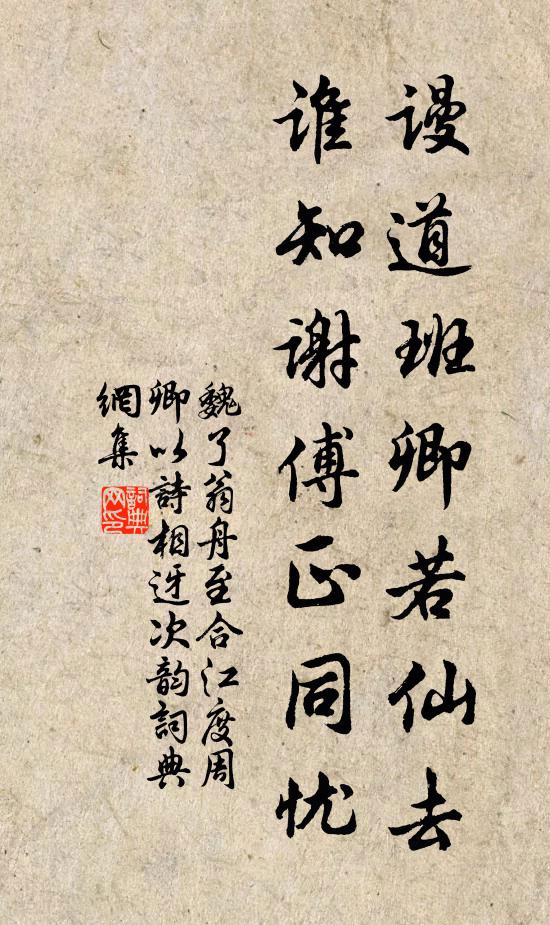 谩道班卿若仙去
谁知谢傅正同忧
魏了翁舟至合江度周
卿以詩相迓次韵詞典
網集
詞典
网印